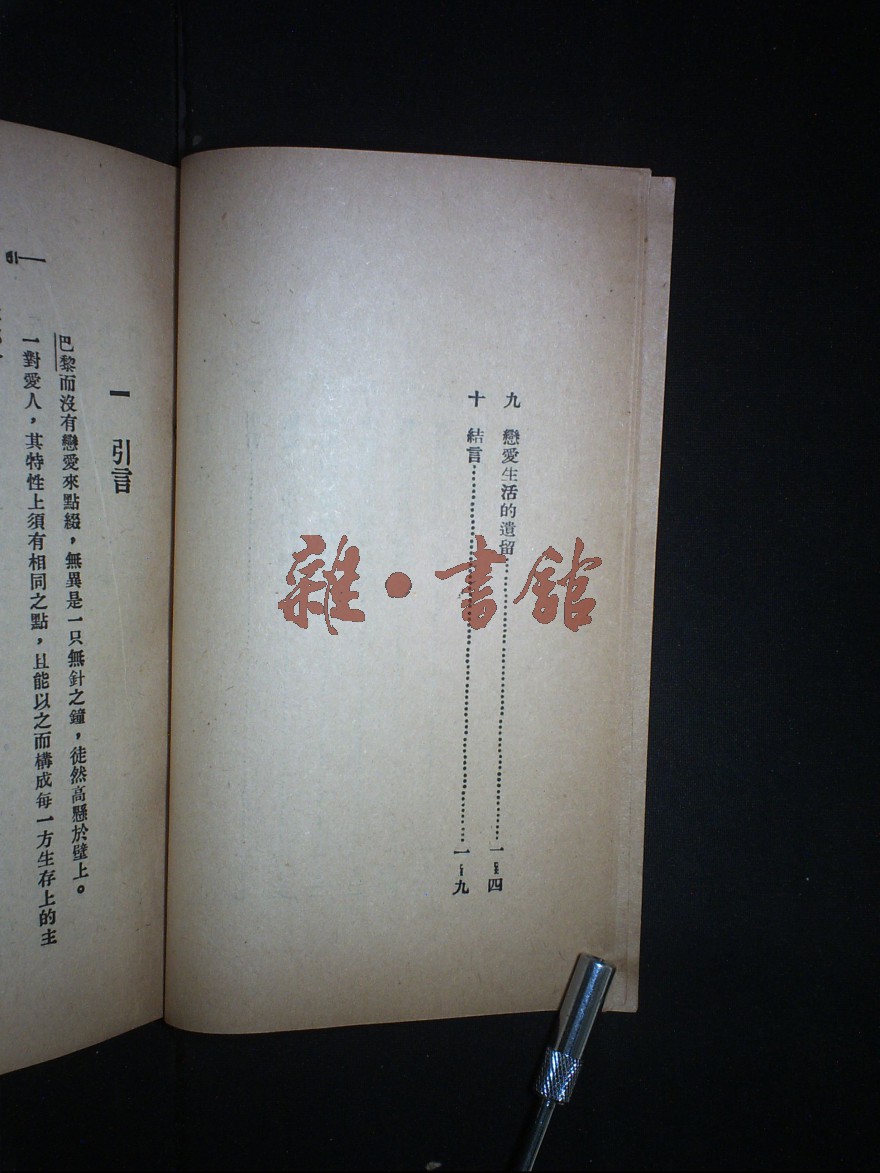 九　戀愛生活的遺留……一四
十　結言……一九
雜・書館
一　引言
巴黎而沒有戀愛來點綴，無異是一只無針之鐘，徒然高懸於壁上。
一對愛人，其特性上須有相同之點，且能以之而構成每一方生存上的主